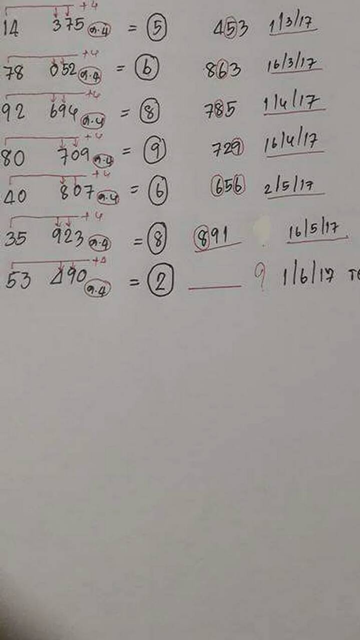 +4
14 375 ล.4 = 5 453 1/3/17
+4
78 052 ล.4 = 6 863 16/3/17
+4
92 694 ล.4 = 8 785 1/4/17
+4
80 709 ล.4 = 9 729 16/4/17
+4
40 807 ล.4 = 6 656 2/5/17
+4
35 923 ล.4 = 8 891 16/5/17
+4
53 490 ล.4 = 2 ___ ? 1/6/17